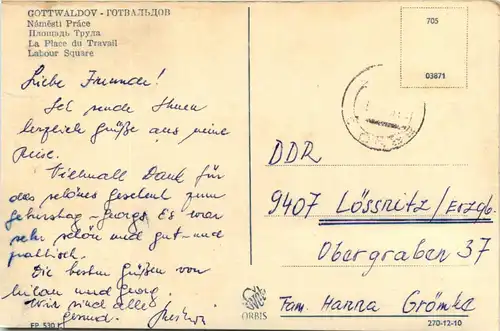 GOTTWALDOV - ГОТВАЛЬДОВ
Náměstí Práce
Площадь Труда
La Place du Travail
Labour Square
705
03871
Liebe Freunde!
Ich sende Ihnen
herzlich grüße aus meine
Reise.
Vielmall Dank für
das schönes geschenk zum
geburstag - Georg. Es war
sehr schön und gut - und
praktisch.
Die besten grüßen von
Milan und Georg
Wir sind alles
gesund.
DDR
9407 Lössnitz/Erzgb.
Obergraben 37
Fam. Hanna Grömke
FP 530
ORBIS
270-12-10